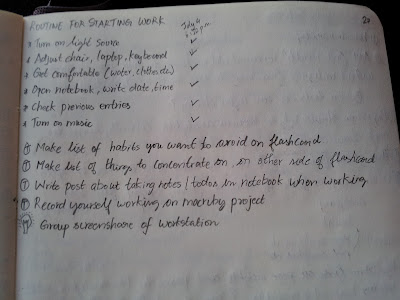 ROUTINE FOR STARTING WORK
July 4
pm
20
* Turn on light source ✓
* Adjust chair, laptop, keyboard ✓
* Get comfortable (water, clothes etc) ✓
* Open notebook, write date, time ✓
* Check previous entries ✓
* Turn on music ✓
T Make list of habits you want to avoid on flashcard
T Make list of things to concentrate on on other side of flashcard
T Write post about taking notes/todos in notebook when working
T Record yourself working on macruby project
Group screenshare of workstation